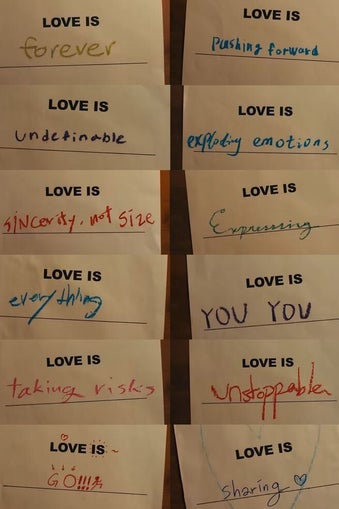 LOVE IS
forever
LOVE IS
pushing forward
LOVE IS
undefinable
LOVE IS
exploding emotions
LOVE IS
sincerity, not size
LOVE IS
Expressing
LOVE IS
everything
LOVE IS
YOU YOU
LOVE IS
taking risks
LOVE IS
unstoppable
LOVE IS
GO!!!
LOVE IS
sharing